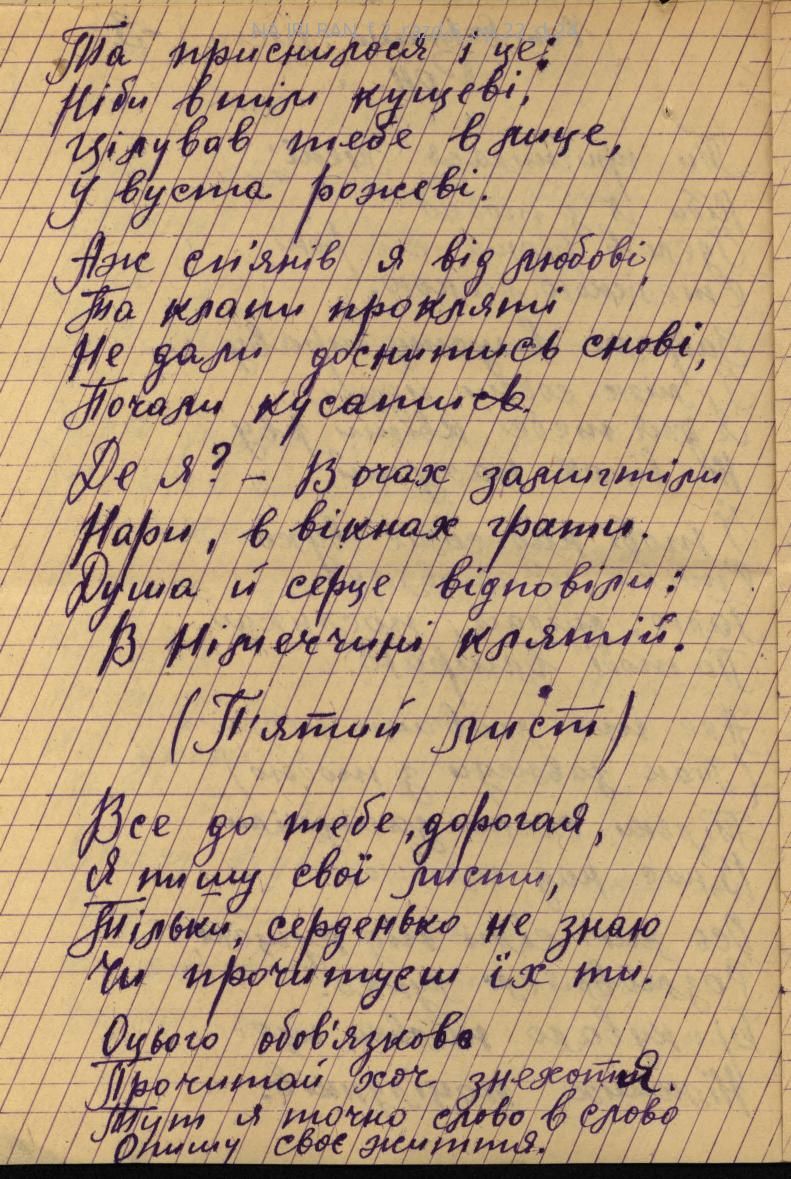 Та приснилося і це:
Ніби в тім кущеві,
Цілував тебе в лице,
У вуста рожеві.
Аж сп'янів я від любові,
Та клапи прокляті
Не дали доснитись снові,
Почали кусатись.
Де я? – В очах замигтіли
Нари, в вікнах грати.
Душа й серце відповіли:
В Німеччині клятій.
(П'ятий лист)
Все до тебе, дорогая,
Я пишу свої листи,
Тільки, серденько не знаю
Чи прочитуєш їх ти.
Оцього обов'язково
Прочитай хоч знехотя.
Тут я точно слово в слово
Опишу своє життя.